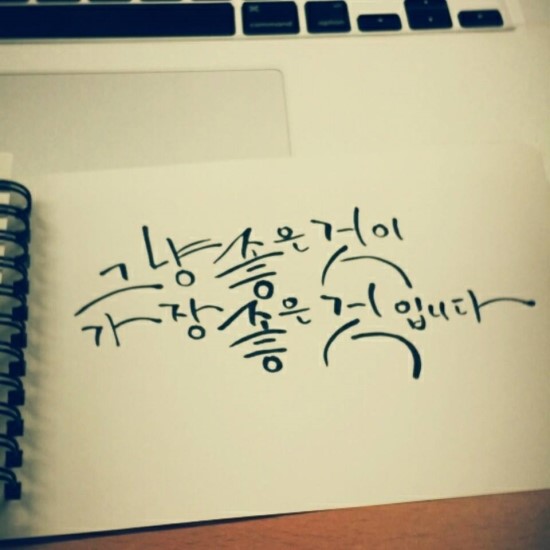 command
option
그냥 좋은 것이
가장 좋은 것입니다